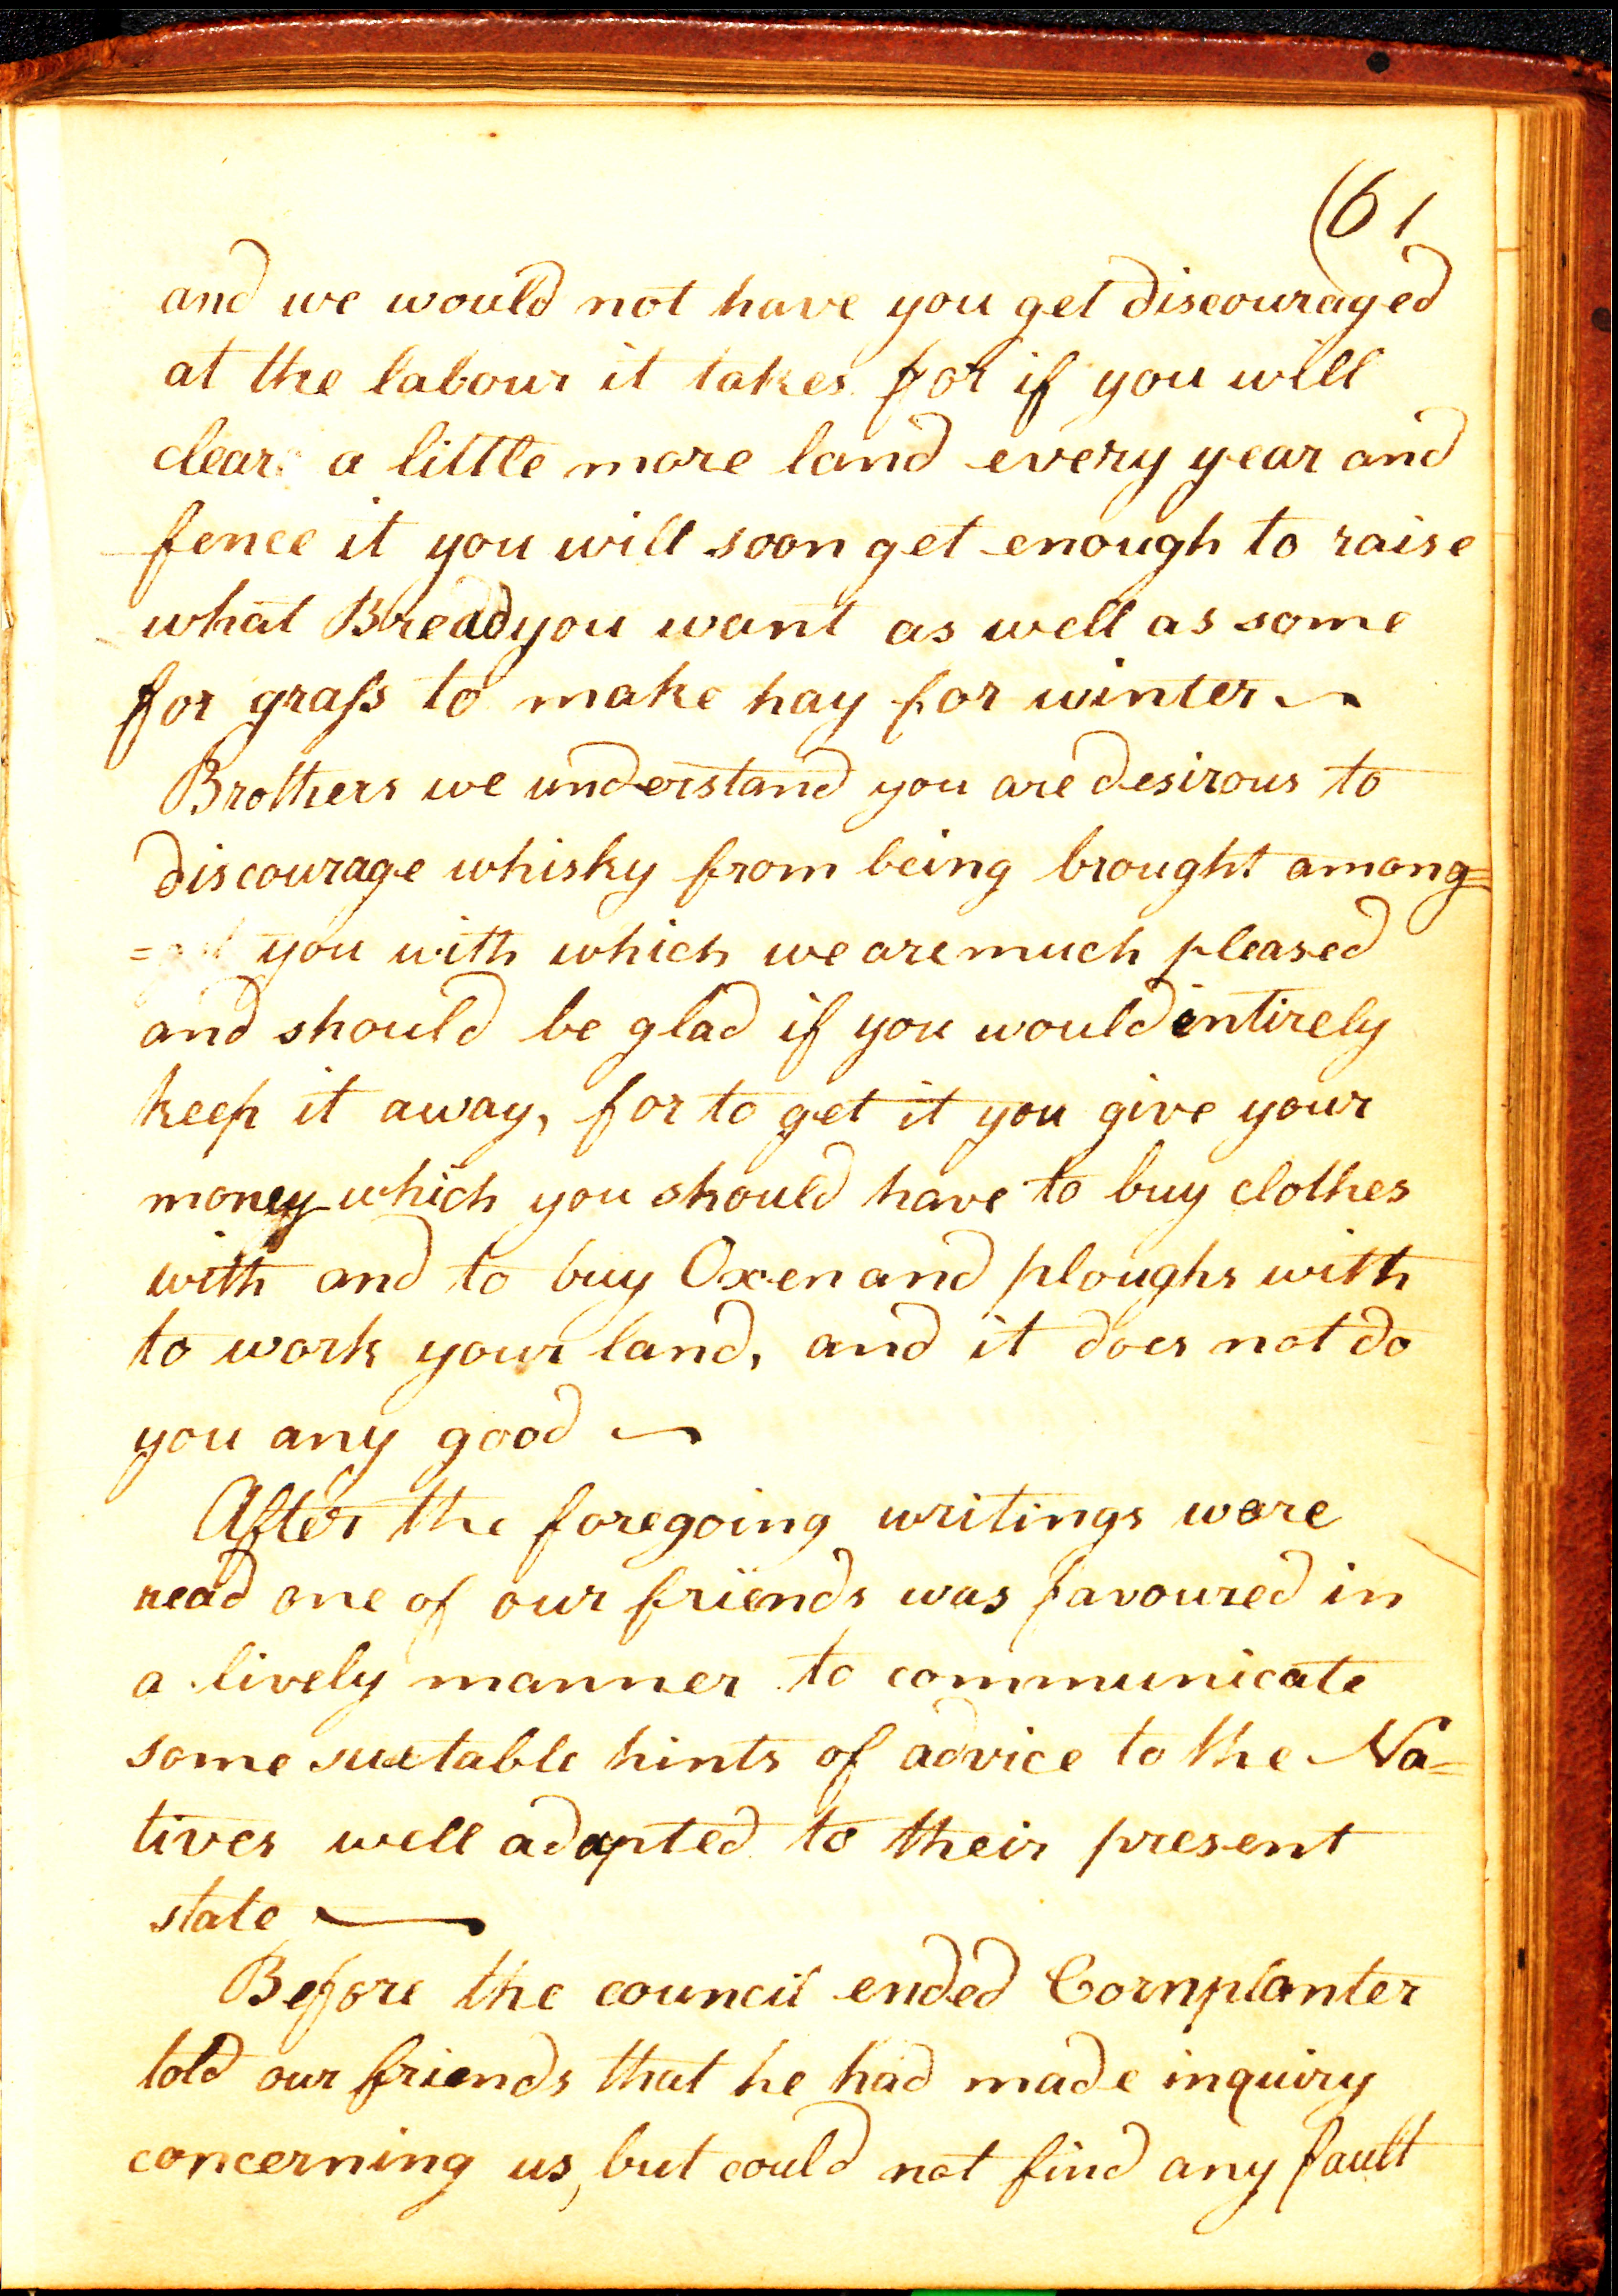 (61
and we would not have you get discouraged
at the labour it takes for if you will
clear a little more land every year and
fence it you will soon get enough to raise
what Bread you want as well as some
for graſs to make hay for winter
Brothers we understand you are desirous to
discourage whisky from being brought among=
you with which we are much pleased
and should be glad if you would entirely
keep it away, for to get it you give your
money which you should have to buy clothes
with and to buy Oxen and ploughs with
to work your land, and it does not do
you any good
After the foregoing writings were
read one of our friends was favoured in
a lively manner to communicate
some suetable hints of advice to the Na=
tives well adapted to their present
state
Before the council ended Cornplanter
told our friends that he had made inquiry
concerning us, but could not find any fault